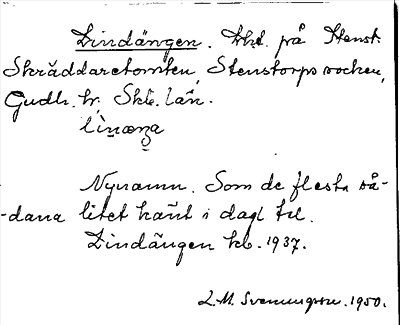 Lindängen. Lht. på Stenst.
Skräddaretomten, Stenstorps socken,
Gudh. hr. Skbg. län.
lìnæŋa
Nynamn. Som de flesta så-
-dana litet känt i dagl. tal.
Lindängen kb. 1937.
L.M. Svenungsson. 1950.